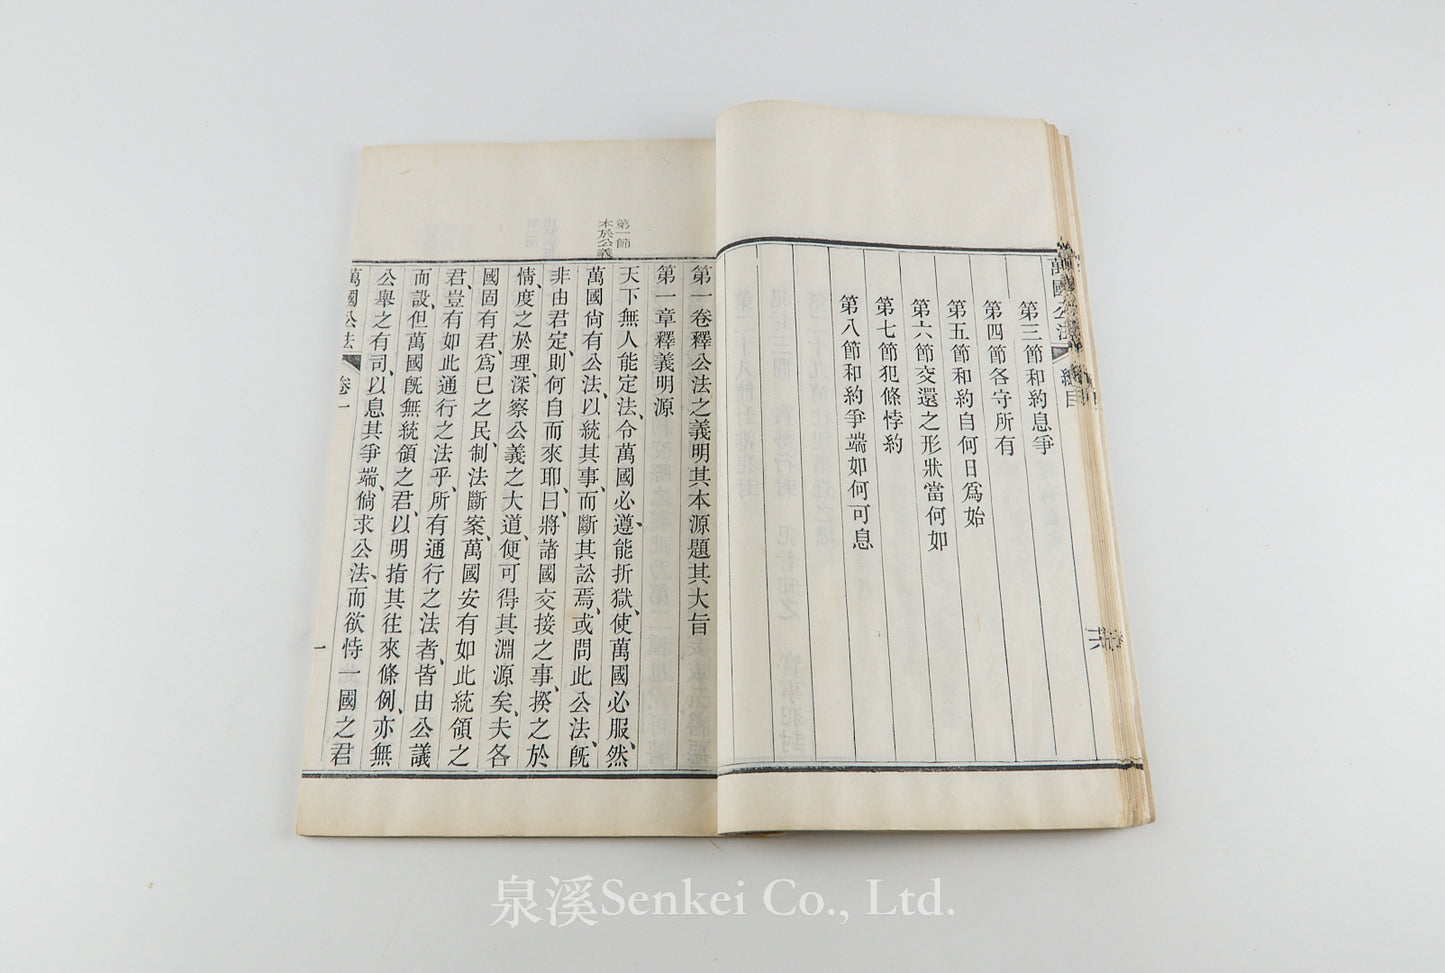 萬國公法
總目
第三節和約息爭
第四節各守所有
第五節和約自何日爲始
第六節交還之形狀當何如
第七節犯條悖約
第八節和約爭端如何可息
第一節
本於公義
第一卷釋公法之義明其本源題其大旨
第一章釋義明源
天下無人能定法、令萬國必遵、能折獄、使萬國必服、然
萬國尙有公法、以統其事、而斷其訟焉、或問此公法、旣
非由君定、則何自而來耶、曰、將諸國交接之事、揆之於
情、度之於理、深察公義之大道、便可得其淵源矣、夫各
國固有君、爲己之民、制法斷案、萬國安有如此統領之
君、豈有如此通行之法乎、所有通行之法者、皆由公議
而設、但萬國旣無統領之君、以明指其往來條例、亦無
公舉之有司、以息其爭端、倘求公法、而欲恃一國之君
萬國公法
卷一
一
泉溪Senkei Co., Ltd.